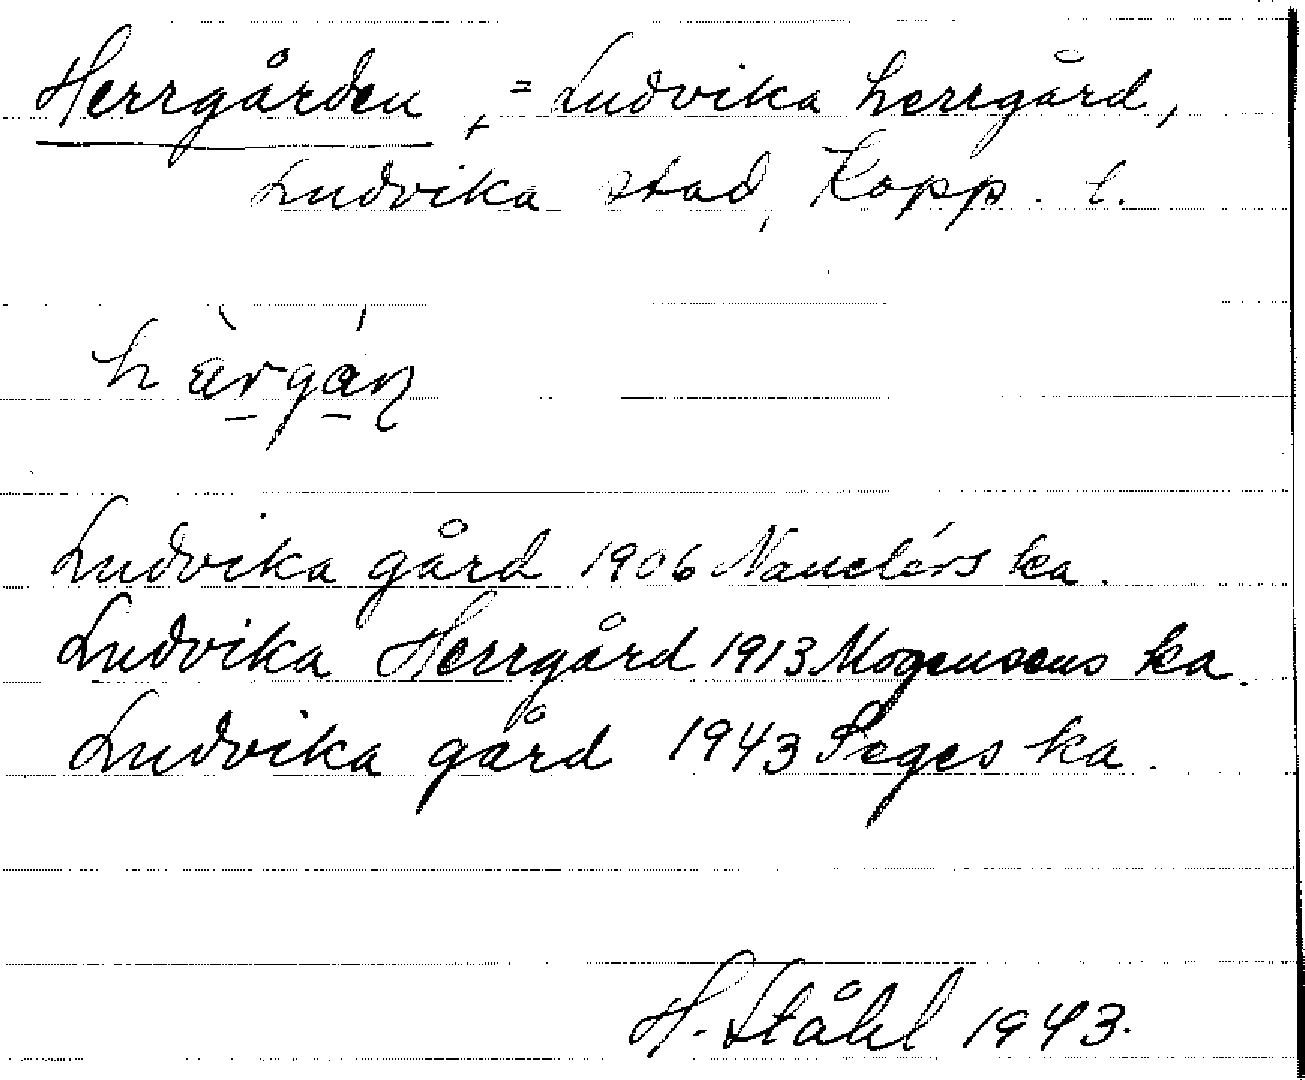 Herrgården, = Ludvika herrgård,
Ludvika stad, Kopp. l.
hàrgán
Ludvika gård 1906 Nauclérs ka.
Ludvika Herrgård 1913 Mogensens ka.
Ludvika gård 1943 Seges ka.
H. Ståhl 1943.